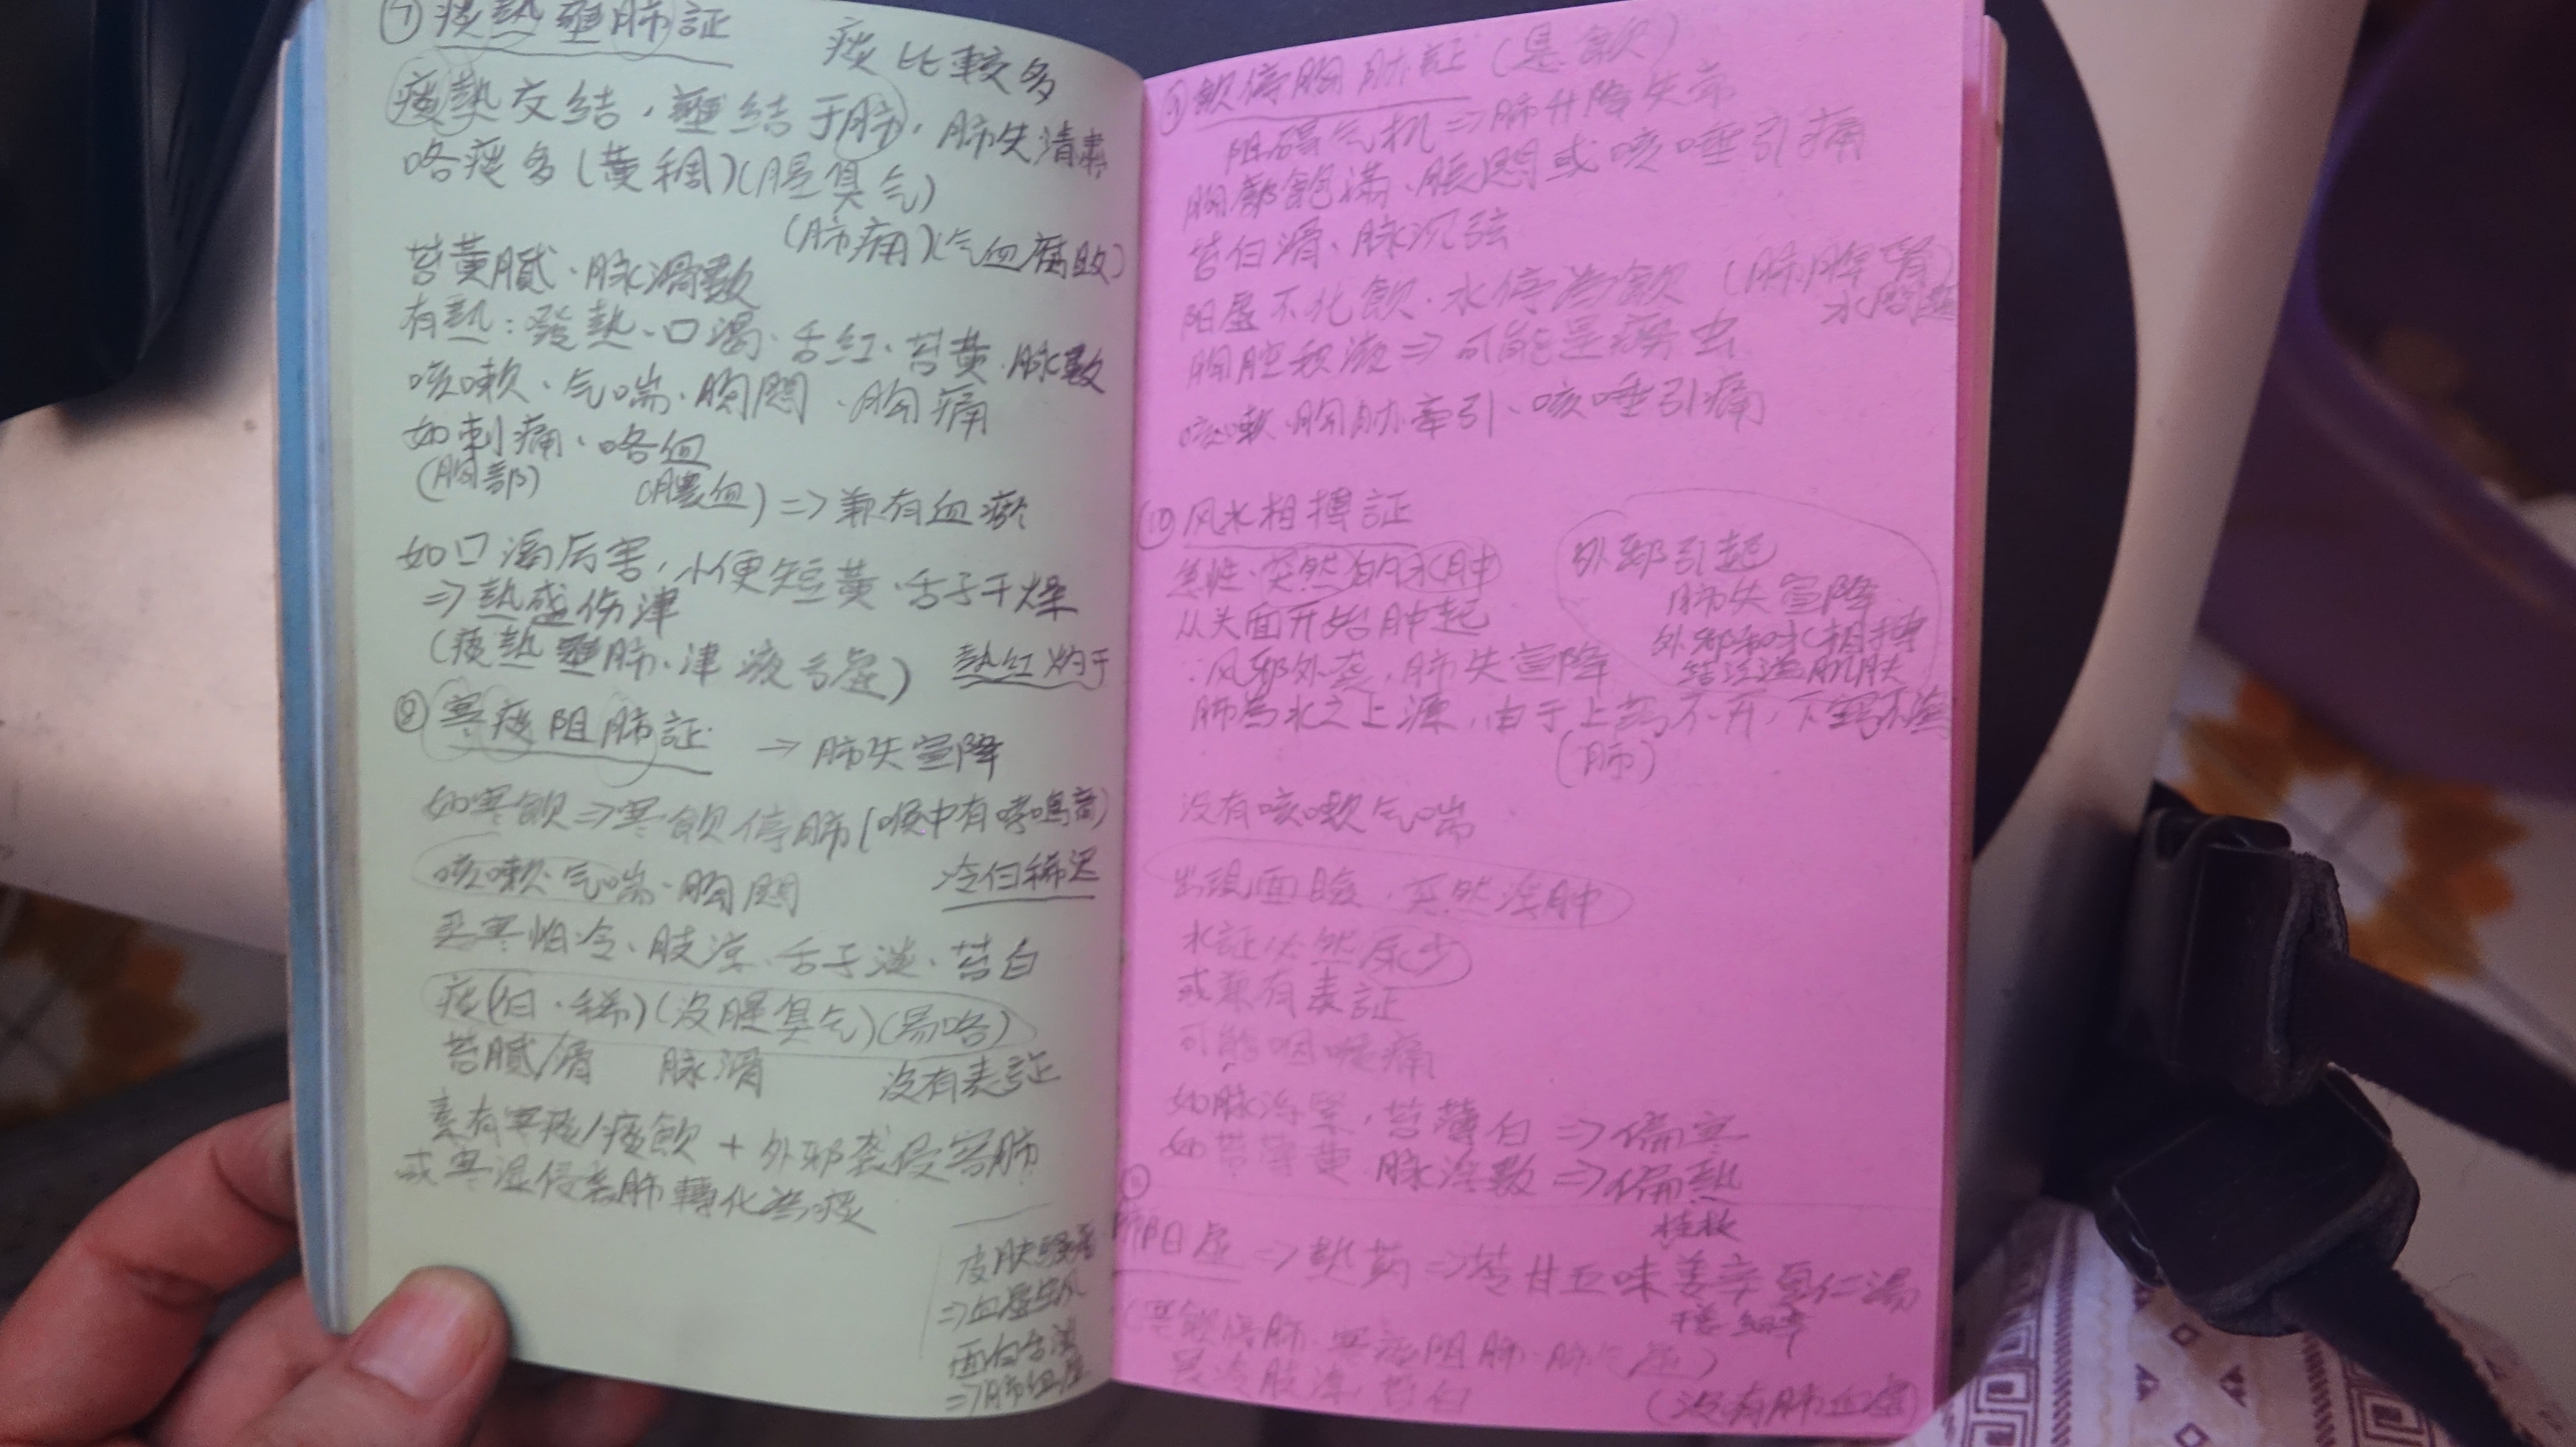 ⑦痰熱壅肺証
痰比較多
痰熱交結，壅結于肺，肺失清肅
咯痰多(黄稠)(腥臭气)
(肺痈)(气血腐败)
苔黄膩、脉滑數
有熱：發熱、口渴、舌紅、苔黄、脉數
咳嗽、气喘、胸悶、胸痛
如刺痛、咯血
(胸部)
(膿血)⇒兼有血瘀
如口渴厉害，小便短黄、舌子干燥
⇒熱盛伤津
(痰熱壅肺、津液亏虚)
熱红灼干
⑧寒痰阻肺証
→肺失宣降
如寒飲⇒寒飲停肺(喉中有哮鳴音)
咳嗽、气喘、胸悶
冷白稀迟
恶寒怕冷、肢凉、舌子淡、苔白
痰(白、稀)(没腥臭气)(易咯)
苔膩/滑 脉滑
没有表証
素有寒痰/痰飲+外邪袭侵害肺
或寒湿侵袭肺轉化為痰
皮肤騷痒
⇒血虚生风
面白舌淡
⇒肺血虚
⑨飲停胸胁証(悬飲)
阻碍气机⇒肺升降失常
胸廓飽满、胀悶或咳唾引痛
苔白滑、脉沉弦
阳虚不化飲、水停為飲
(肺脾腎)
水問題
胸腔积液⇒可能是痨虫
咳嗽、胸胁牵引、咳唾引痛
⑩风水相搏証
急性、突然的水肿
从头面开始肿起
∵风邪外袭，肺失宣降
肺為水之上源，由于上窍不开，下窍不泄
(肺)
外邪引起
肺失宣降
外邪和水相搏
結泛溢肌肤
没有咳嗽气喘
出現面瞼、突然浮肿
水証必然尿少
或兼有表証
可能咽喉痛
如脉浮緊，苔薄白⇒偏寒
如苔薄黄 脉浮數⇒偏熱
⑪
肺阳虚⇒熱药⇒苓甘五味姜辛夏仁湯
桂枝
干姜 細辛
(寒飲停肺、寒痰阻肺、肺气虚)
畏冷肢凉，苔白
(没有肺血虚)